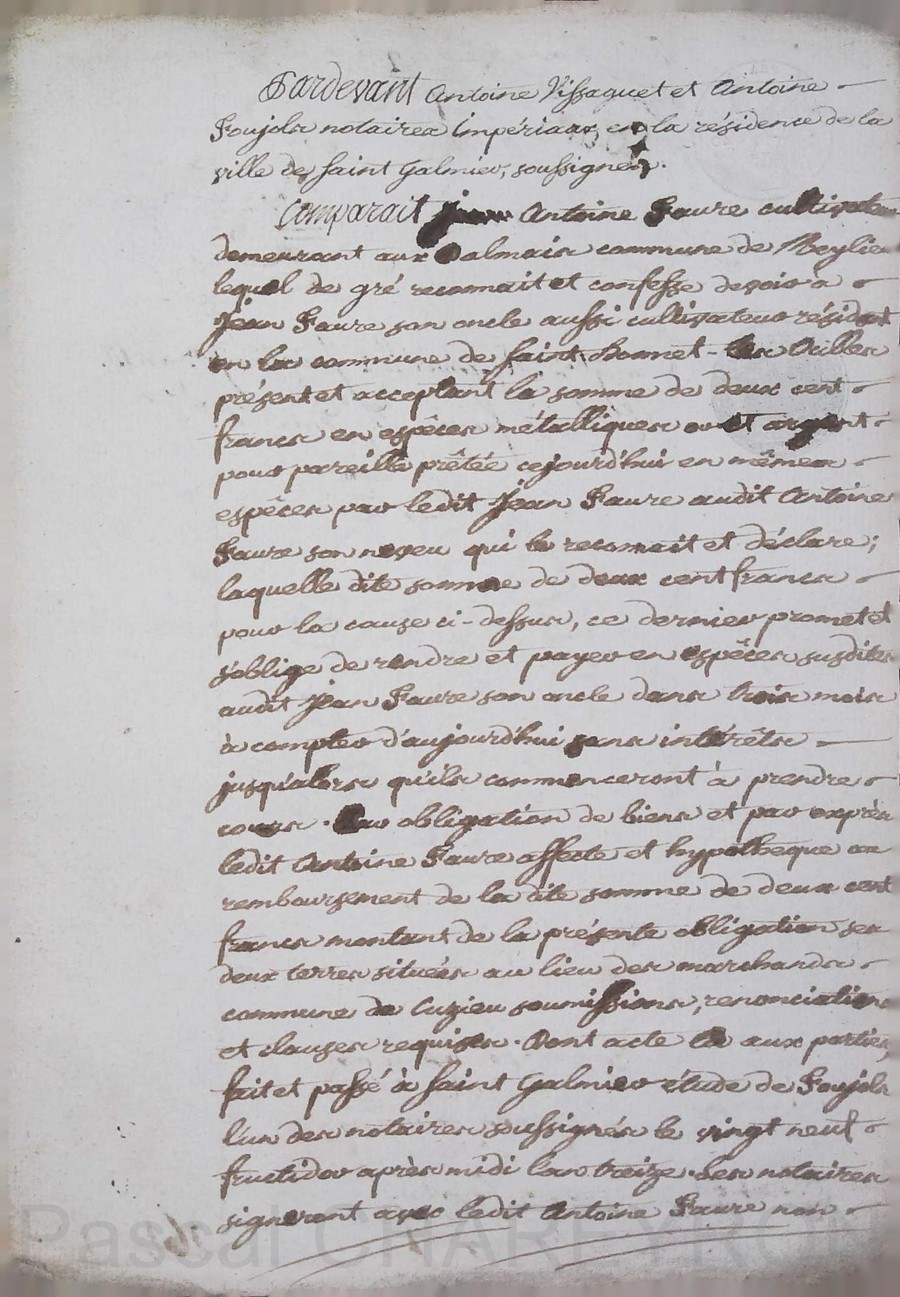 Pardevant Antoine Vissaguet et Antoine
Foujols notaires impériaux, en la résidence de la
ville de Saint Galmier, soussignés.
Comparait Antoine Faure cultivateur
demeurant aux Palmais commune de Meylieu
lequel de gré reconnait et confesse devoir à
Jean Faure son oncle aussi cultivateur résidant
en la commune de Saint bonnet-les Oulles
présent et acceptant la somme de deux cent
francs en espèces métalliques or et argent
pour pareille prêtée cejourd'hui en mêmes
espèces par ledit Jean Faure audit Antoine
Faure son neveu qui le reconnait et déclare;
laquelle dite somme de deux cent francs
pour la cause ci-dessus, ce dernier promet et
s'oblige de rendre et payer en espèces susdites
audit Jean Faure son oncle dans trois mois
à compter d'aujourd'hui sans intérêts
jusqu'alors qu'ils commenceront à prendre
cours. Par obligation de biens et par exprès
ledit Antoine Faure affecte et hypothèque au
remboursement de la dite somme de deux cent
francs montant de la présente obligation ses
deux terres situées au lieu des marchands
commune de Cuzieu soumissions, renonciations
et clauses requises. Dont acte aux parties,
fait et passé à Saint Galmier étude de Foujols
l'un des notaires soussignés le vingt neuf
fructidor après midi l'an treize. Les notaires
signeront avec ledit Antoine Faure non
Pascal CHAREYRON